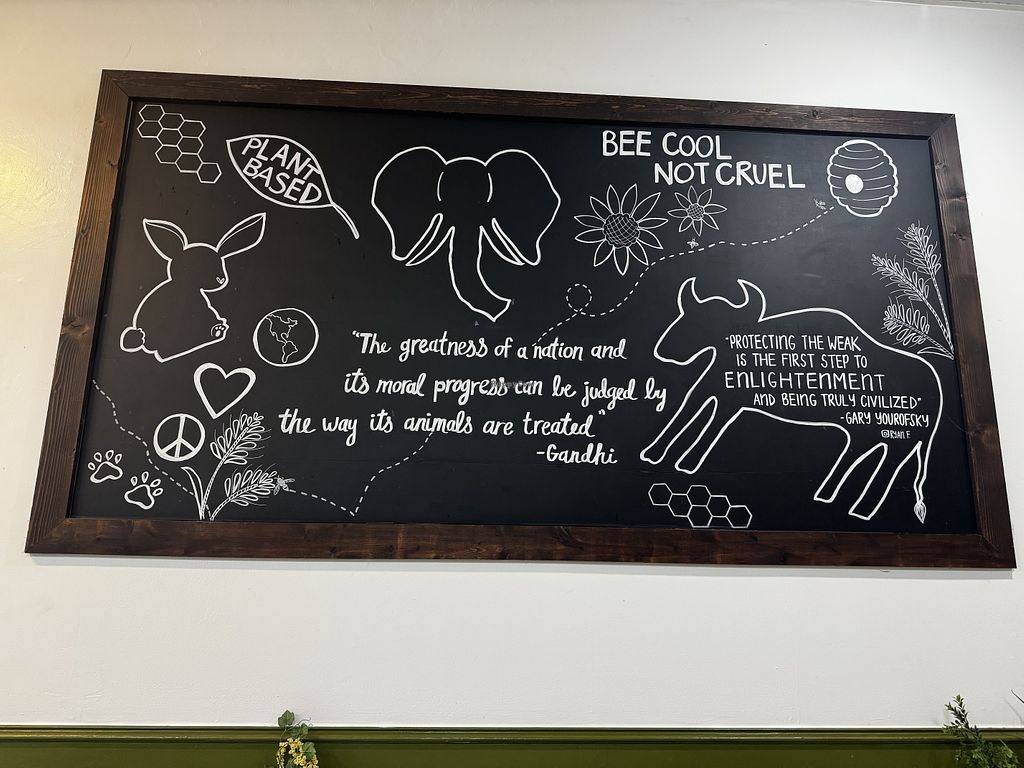 PLANT
BASED
BEE COOL
NOT CRUEL
"The greatness of a nation and
its moral progress can be judged by
the way its animals are treated"
-Gandhi
"PROTECTING THE WEAK
IS THE FIRST STEP TO
ENLIGHTENMENT
AND BEING TRULY CIVILIZED"
-GARY YOUROFSKY
@RYAN F.